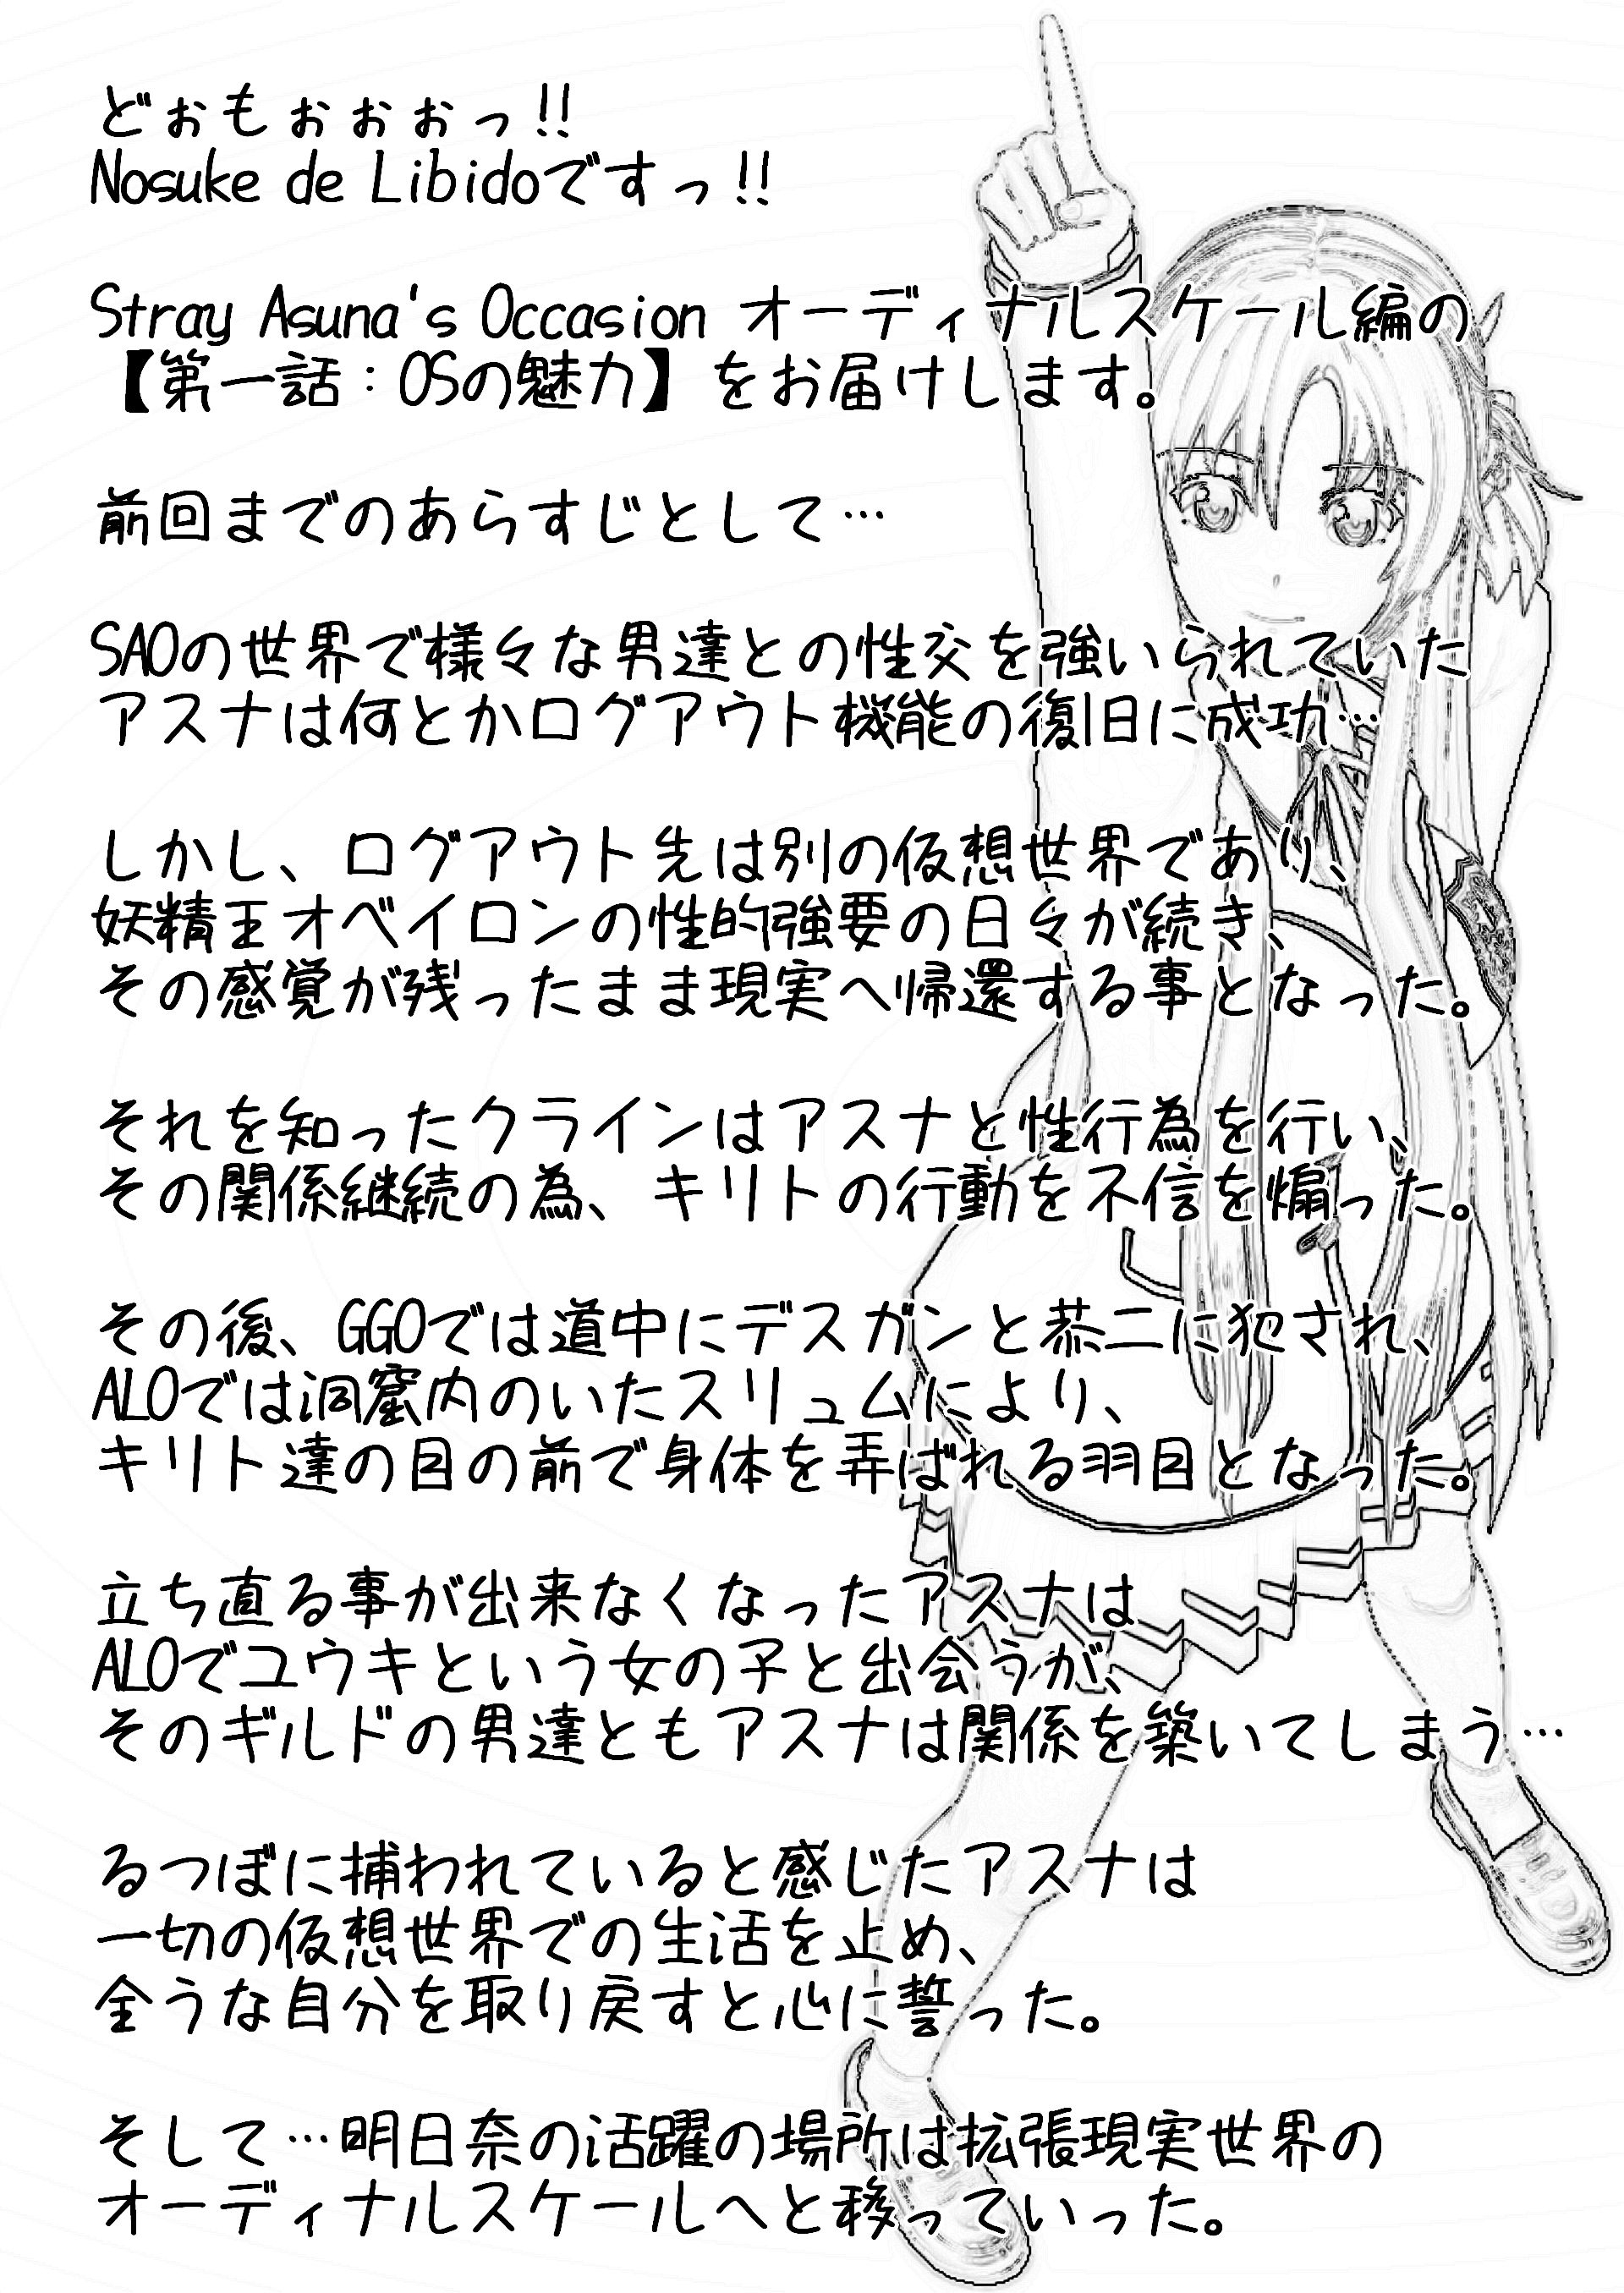 どぉもぉぉぉっ!!
Nosuke de Libidoですっ!!
Stray Asuna's Occasion オーディナルスケール編の
【第一話：OSの魅力】をお届けします。
前回までのあらすじとして…
SAOの世界で様々な男達との性交を強いられていた
アスナは何とかログアウト機能の復旧に成功…
しかし、ログアウト先は別の仮想世界であり、
妖精王オベイロンの性的強要の日々が続き、
その感覚が残ったまま現実へ帰還する事となった。
それを知ったクラインはアスナと性行為を行い、
その関係継続の為、キリトの行動を不信を煽った。
その後、GGOでは道中にデスガンと恭二に犯され、
ALOでは洞窟内のいたスリュムにより、
キリト達の目の前で身体を弄ばれる羽目となった。
立ち直る事が出来なくなったアスナは
ALOでユウキという女の子と出会うが、
そのギルドの男達ともアスナは関係を築いてしまう…
るつぼに捕われていると感じたアスナは
一切の仮想世界での生活を止め、
全うな自分を取り戻すと心に誓った。
そして…明日奈の活躍の場所は拡張現実世界の
オーディナルスケールへと移っていった。